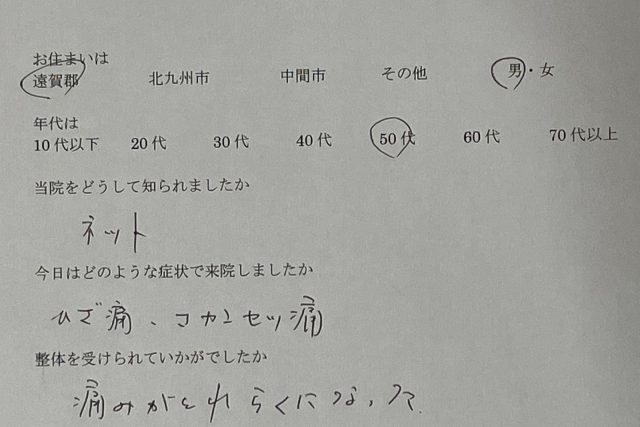 お住まいは
遠賀郡 北九州市 中間市 その他 男・女
年代は
10代以下 20代 30代 40代 50代 60代 70代以上
当院をどうして知られましたか
ネット
今日はどのような症状で来院しましたか
ひざ痛、コカンセツ痛
整体を受けられていかがでしたか
痛みがとれらくになった.